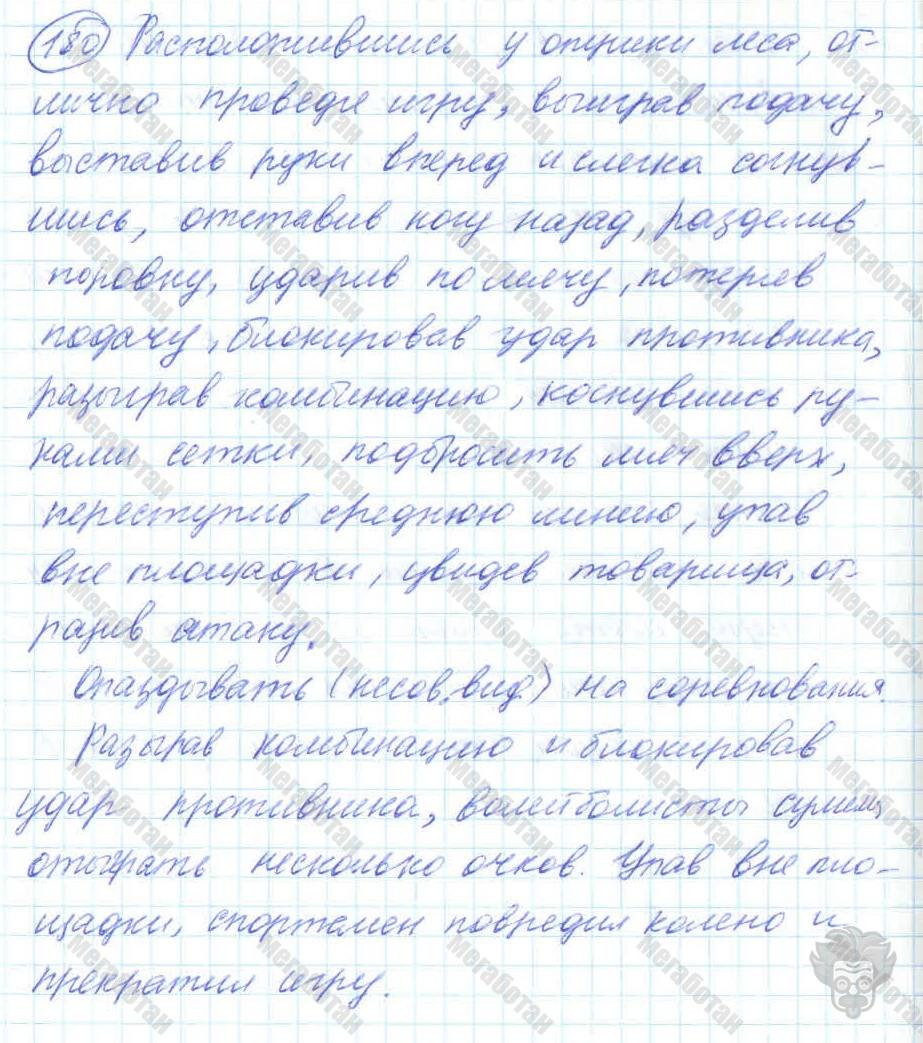 180 Расположившись у опушки леса, от-
лично проведя игру, выиграв подачу,
выставив руки вперед и слегка согнув-
шись, отставив ногу назад, разделив
поровну, ударив по мячу, потеряв
подачу, блокировав удар противника,
разыграв комбинацию, коснувшись ру-
ками сетки, подбросить мяч вверх,
переступив среднюю линию, упав
вне площадки, увидев товарища, от-
разив атаку.
Опаздывать (несов. вид) на соревнования.
Разыграв комбинацию и блокировав
удар противника, волейболисты сумели
отыграть несколько очков. Упав вне пло-
щадки, спортсмен повредил колено и
прекратил игру.
Мегаботан